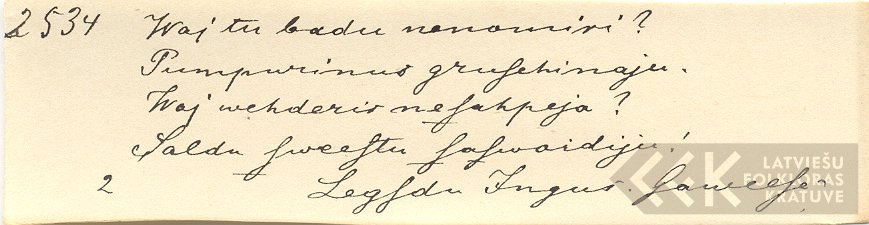 2534 Waj tu badu nenomiri?
Pumpurinus grusehinaju.
Waj wehderis nesahpeja?
Saldu sweestu saswaidiju!
2 Legsdu Ingus.
LATVIEŠU
FOLKLORAS
KRĀTUVE